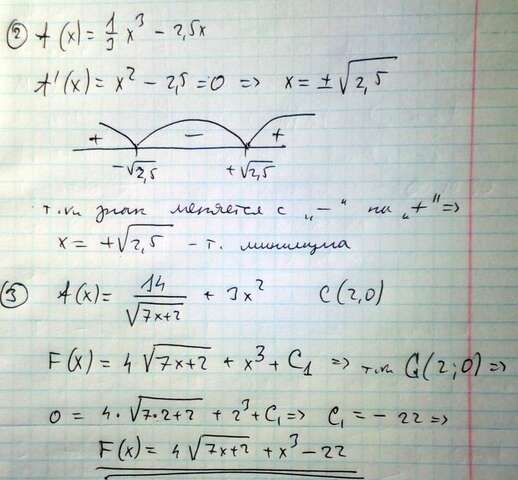 ② f(x) = 1/3 x³ - 2,5x
f'(x) = x² - 2,5 = 0 => x = ±√2,5
+ - +
-√2,5 +√2,5
т.к. знак меняется с „-“ на „+“ =>
x = +√2,5 - т. минимума
③ f(x) = 14/√7x+2 + 3x² C(2,0)
F(x) = 4√7x+2 + x³ + C₁ => т.к. C(2;0) =>
0 = 4·√7·2+2 + 2³ + C₁ => C₁ = - 22 =>
F(x) = 4√7x+2 + x³ - 22